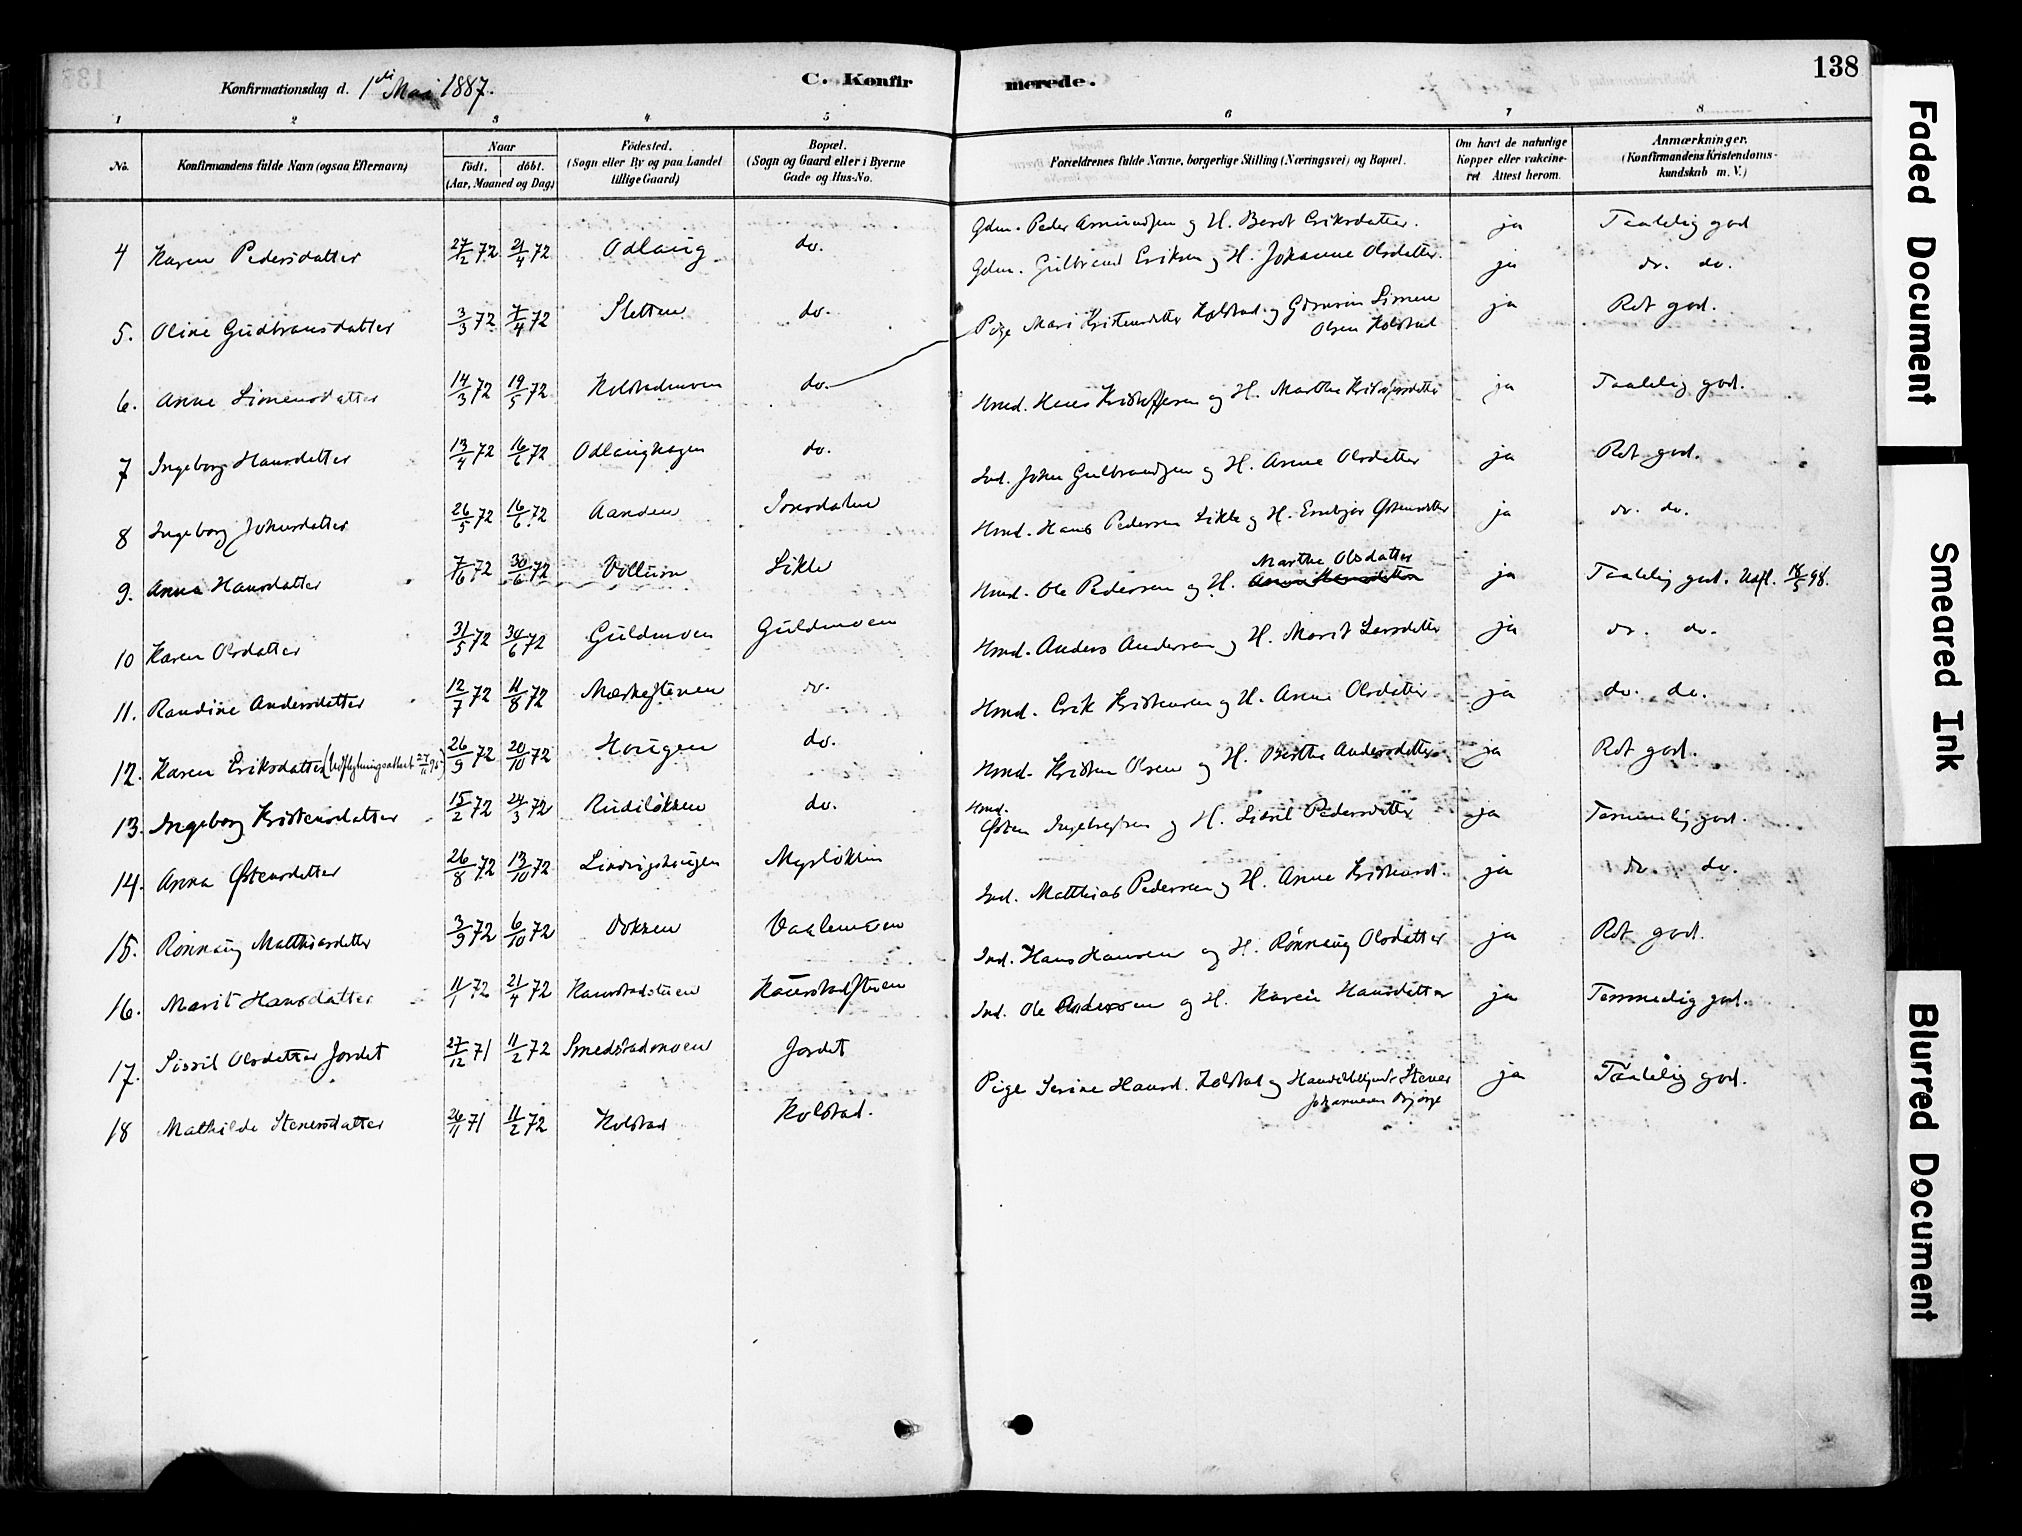 Konfirmationsdag d. 1ste Mai 1887.
C. Konfirmerede.
138
1 2 3 4 5 6 7 8
No.
Konfirmandens fulde Navn (ogsaa Efternavn)
Naar
født. døbt.
(Aar, Maaned og Dag)
Fødested.
(Sogn eller By og paa Landet
tillige Gaard)
Bopæl.
(Sogn og Gaard eller i Byerne
Gade og Hus-No.
Forældrenes fulde Navne, borgerlige Stilling (Næringsvei) og Bopæl.
Om havt de naturlige
Kopper eller vakcineret
Attest herom.
Anmærkninger.
(Konfirmandens Kristendomskundskab
m. V.)
4 Karen Pedersdatter 27/2 72 21/4 72 Odlaug do. Gdm. Peder Amundsen og H. Berit Eriksdatter. ja Taalelig god
5. Oline Gudbransdatter 3/3 72 7/4 72 Sletten do. Gdm. Gulbrand Eriksen og H. Johanne Olsdatter. ja do. do.
6. Anne Simensdatter 14/3 72 19/5 72 Kolstadmoen do. Pige Mari Kristensdatter Kolstad og Gmsøn Simen
Olsen Kolstad ja Ret god.
7 Ingeborg Hansdatter 13/4 72 16/6 72 Odlaughagen do. Hmd. Hans Kristoffersen og H. Marthe Kristofersdatter ja Taalelig god.
8 Ingeborg Johnsdatter 26/5 72 16/6 72 Aanden Ind. John Gulbrandsen og H. Anne Olsdatter ja Ret god.
9. Anna Hansdatter 7/6 72 30/6 72 Vollum Likle Hmd. Hans Pedersen Likle og H. ja do. do.
10 Karen Olsdatter 31/5 72 6 72 Guldmoen Guldmoen Hmd. Ole Pedersen og H. Marthe Olsdatter ja Taalelig god. Udfl. 18/5 98.
11. Randine Andersdatter 12/7 72 11/8 72 do. Hmd. Anders Andersen og H. Marit Larsdatter ja do. do.
12. Karen Eriksdatter (Udflytningsattest 27/11 ) 26/9 72 20/10 72 Haugen do. Hmd. Erik Kristensen og H. Anne Olsdatter ja do. do.
13. Ingeborg Kristensdatter 15/2 72 24/3 72 Rudiløkken do. Hmd. Kristen Olsen og H. Berthe Andersdatter ja Ret god.
14. Anna Østensdatter 26/8 72 13/10 72 Myrløkken Hmd.
Østen Ingebregtsen og H. Sissil Pedersdatter ja Temmelig god.
15. Rønnaug Matthiasdatter 3/9 72 6/10 72 Vaalemoen Ind. Matthias Pedersen og H. Anne Kristensd. ja do. do.
16. Marit Hansdatter 11/1 72 21/4 72 Kaurstadstuen Kaurstadstuen Ind. Hans Hansen og H. Rønnaug Olsdatter ja Ret god.
17. Sissil Olsdatter Jordet 27/12 71 11/2 72 Smedstadmoen Jordet Ind. Ole Andersen og H. Karen Hansdatter ja Temmelig god.
18 Mathilde Stenersdatter 26/11 71 11/2 72 Kolstad Kolstad. Pige Serine Hansd. Kolstad og Handelsbetjent Stener
Johannesen Bjørge ja Taalelig god.
Faded Document
Smeared Ink
Blurred Document